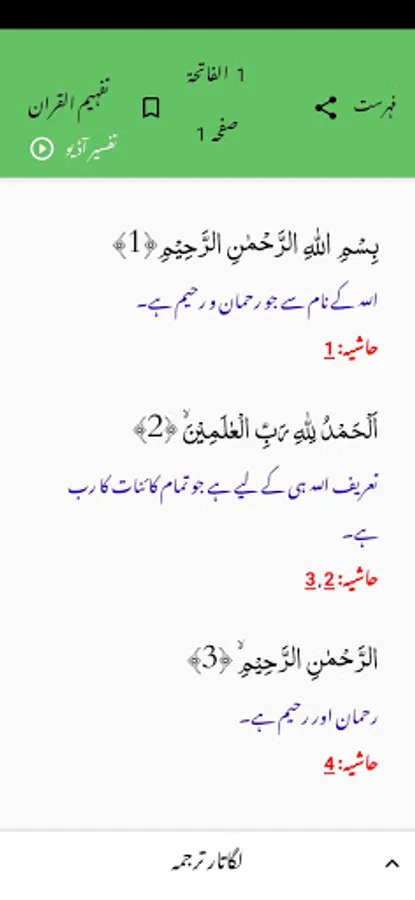 1 الفاتحة
فہرست
تفہیم القران
صفحہ 1
تفسیر آڈیو
بِسْمِ اللهِ الرَّحْمٰنِ الرَّحِيْمِ ﴿1﴾
اللہ کے نام سے جو رحمان و رحیم ہے۔
حاشیہ: 1
اَلْحَمْدُ لِلّٰهِ رَبِّ الْعٰلَمِيْنَۙ ﴿2﴾
تعریف اللہ ہی کے لیے ہے جو تمام کائنات کا رب
ہے۔
حاشیہ: 2, 3
الرَّحْمٰنِ الرَّحِيْمِۙ ﴿3﴾
رحمان اور رحیم ہے۔
حاشیہ: 4
لگاتار ترجمہ